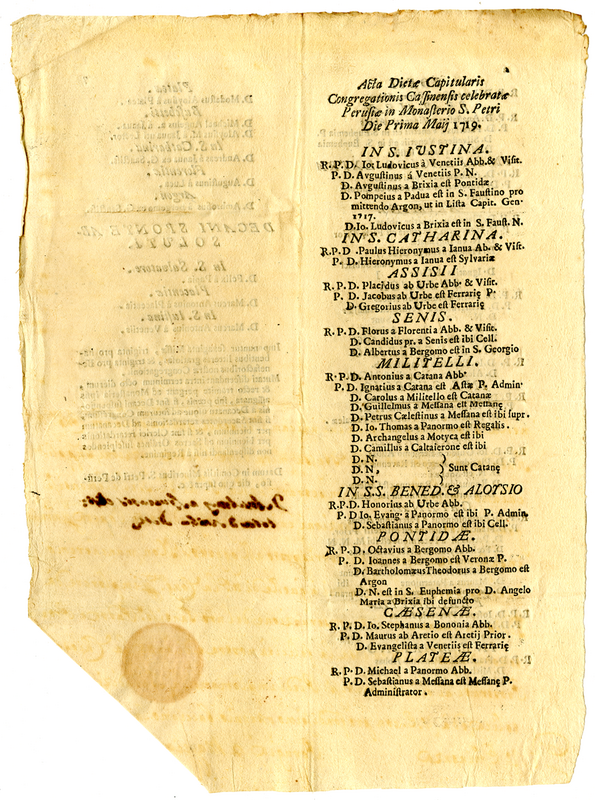 Acta Dietæ Capitularis
Congregationis Cassinensis celebratæ
Perusiæ in Monasterio S. Petri
Die Prima Maij 1719.
IN S. IUSTINA.
R. P. D. Io: Ludovicus à Venetiis Abb. & Visit.
P. D. Avgustinus á Venetiis P. N.
D. Avgustinus a Brixia est Pontidæ
D. Pompeius a Padua est in S. Faustino pro
mittendo Argon, ut in Lista Capit. Gen.
1717.
D. Io. Ludovicus a Brixia est in S. Faust. N.
IN S. CATHARINA.
R. P. D. Paulus Hieronymus a Ianua Ab. & Visit.
P. D. Hieronymus a Ianua est Sylvariæ
ASSISII
R. P. D. Placidus ab Urbe Abb. & Visit.
P. D. Jacobus ab Urbe est Ferrarię P.
D. Gregorius ab Urbe est Ferrarię
SENIS.
R. P. D. Florus a Florentia Abb. & Visit.
D. Candidus pr. a Senis est ibi Cell.
D. Albertus a Bergomo est in S. Georgio
MILITELLI.
R. P. D. Antonius a Catana Abb.
P. D. Ignatius a Catana est Astæ P. Admin.
D. Carolus a Militello est Catanæ
D. Guislelmus a Messana est Messanę
D. Petrus Cælestinus a Messana est ibi supr.
D. Io. Thomas a Panormo est Regalis.
D. Archangelus a Motyca est ibi
D. Camillus a Caltaierone est ibi
D. N.
D. N, } Sunt Catanę
D. N.
IN S.S. BENED. & ALOYSIO
R. P. D. Honorius ab Urbe Abb.
P. D Io. Evang. a Panormo est ibi P. Admin.
D. Sebastianus a Panormo est ibi Cell.
PONTIDÆ.
R. P. D. Octavius a Bergomo Abb.
P. D. Ioannes a Bergomo est Veronæ P.
D. Bartholomæus Theodorus a Bergomo est
Argon
D. N. est in S. Euphemia pro D. Angelo
Maria a Brixia ibi defuncto
CÆSENÆ.
R. P. D. Io. Stephanus a Bononia Abb.
P. D. Maurus ab Aretio est Aretij Prior.
D. Evangelista a Venetiis est Ferrarię
PLATEÆ.
R. P. D. Michael a Panormo Abb.
P. D. Sebastianus a Messana est Messanę P.
Administrator.